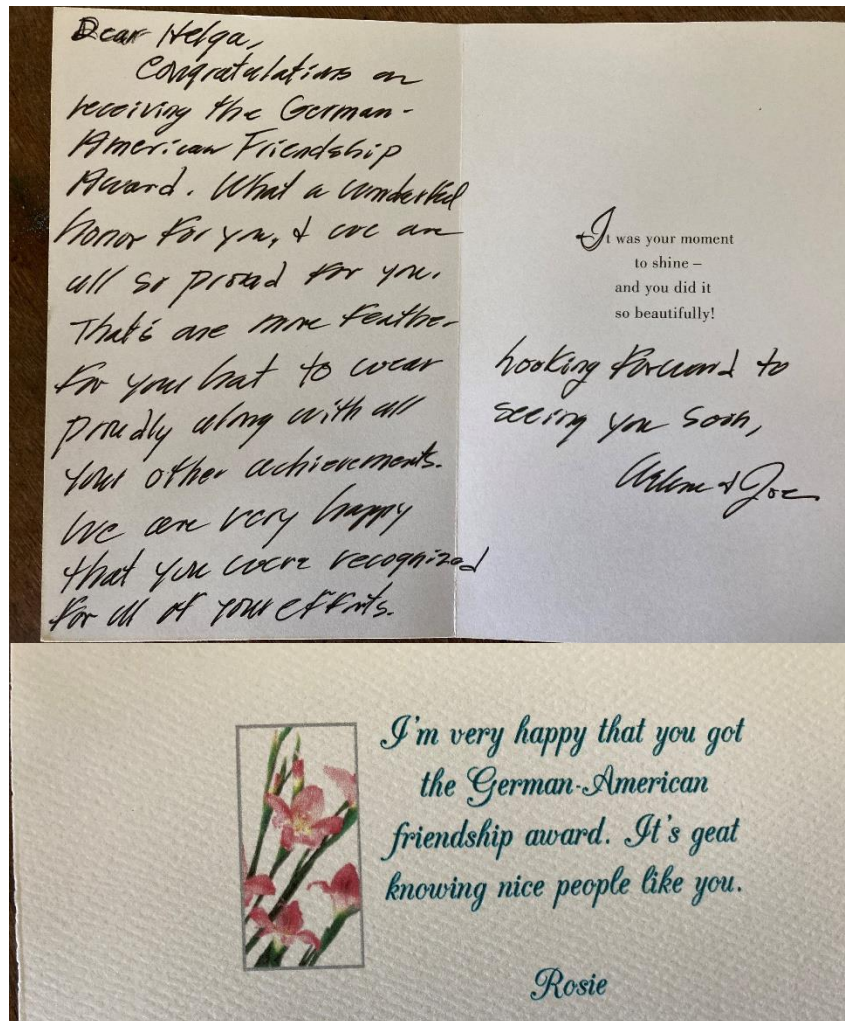 Dear Helga,
Congratulations on
receiving the German-
American Friendship
Award. What a wonderful
honor for you, & we are
all so proud for you.
That's one more feather
for your hat to wear
proudly along with all
your other achievements.
We are very happy
that you were recognized
for all of your efforts.
It was your moment
to shine –
and you did it
so beautifully!
Looking forward to
seeing you soon,
Arlene & Joe
I'm very happy that you got
the German-American
friendship award. It's geat
knowing nice people like you.
Rosie